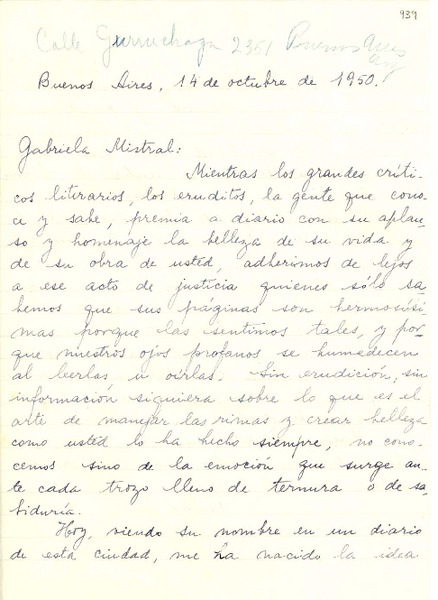 939
Calle Gurruchaga 2351 Buenos Aires
Arg
Buenos Aires, 14 de octubre de 1950.
Gabriela Mistral:
Mientras los grandes críti-
cos literarios, los eruditos, la gente que cono-
ce y sabe, premia a diario con su aplau-
so y homenaje la belleza de su vida y
de su obra de usted, adherimos de lejos
a ese acto de justicia quienes sólo sa-
bemos que sus páginas son hermosísi-
mas porque las sentimos tales, y por-
que nuestros ojos profanos se humedecen
al leerlas u oirlas. Sin erudición, sin
información siquiera sobre lo que es el
arte de manejar las rimas y crear belleza
como usted lo ha hecho siempre, no cono-
cemos sino de la emoción que surge an-
te cada trozo lleno de ternura o de sa-
biduría.
Hoy, viendo su nombre en un diario
de esta ciudad, me ha nacido la idea